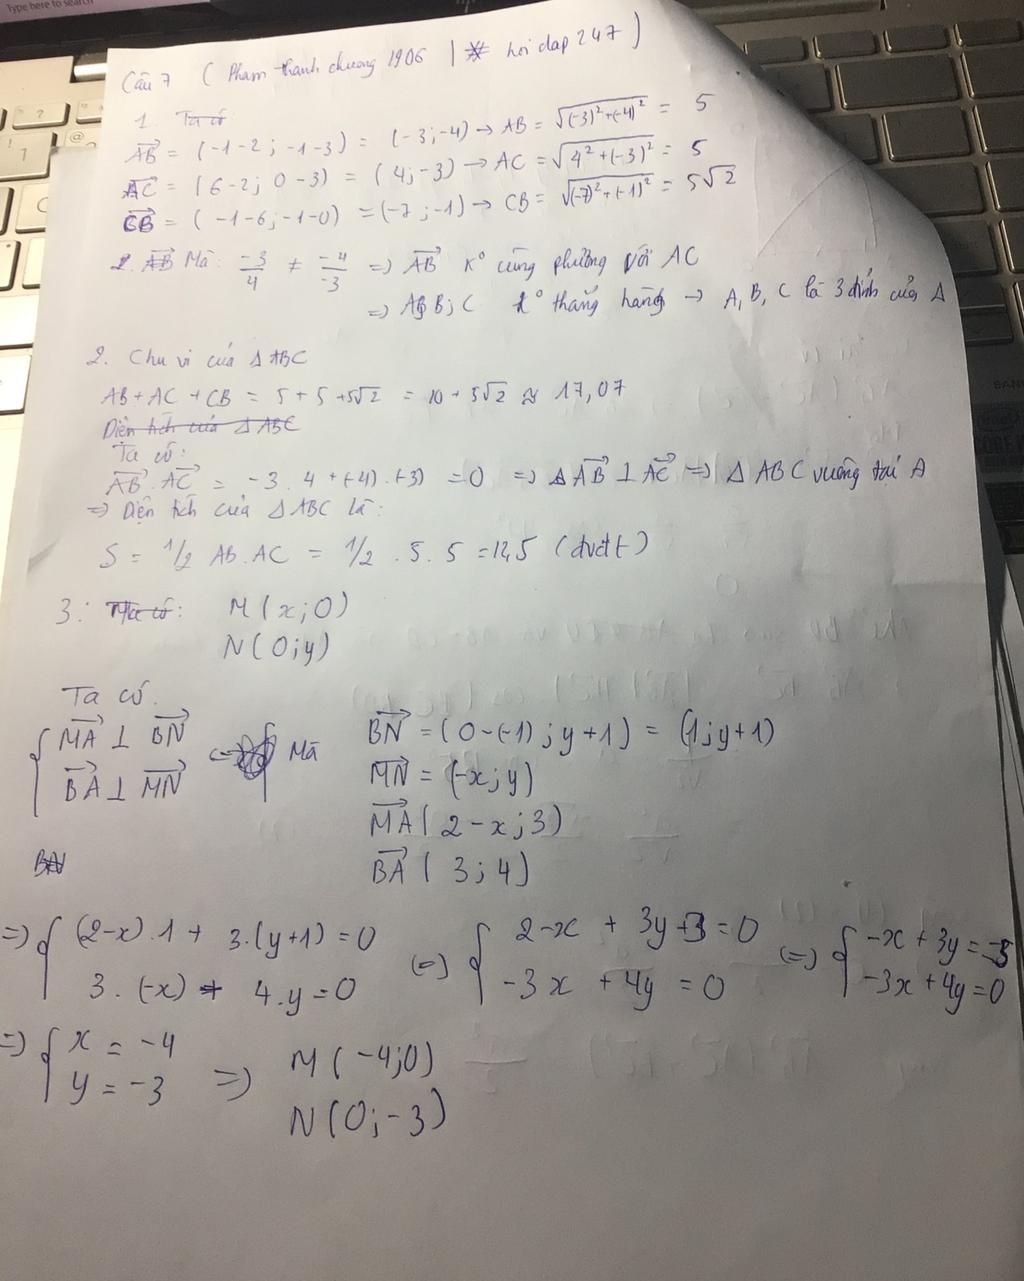 Type here to search
Câu 7 ( Pham thanh chuong 1906 | hoi dap 247 )
1. Ta có
AB = (-1-2 ; -1-3) = (-3;-4) → AB = √(-3)²+(-4)² = 5
AC = (6-2; 0-3) = (4;-3) → AC = √4²+(-3)² = 5
CB = (-1-6;-1-0) = (-7;-1) → CB = √(-7)²+(-1)² = 5√2
2. AB Mà -3/4 ≠ -4/-3 => AB k° cùng phương với AC
=> A; B; C k° thẳng hàng → A, B, C là 3 đỉnh của Δ
2. Chu vi của Δ ABC
AB+AC+CB = 5+5+5√2 = 10+5√2 ≈ 17,07
Diện tích của Δ ABC
Ta có:
AB . AC = -3 . 4 + (-4) . (-3) = 0 => AB ⊥ AC => Δ ABC vuông tại A
=> Diện tích của Δ ABC là:
S = 1/2 AB.AC = 1/2 . 5 . 5 = 12,5 (đvdt)
3. M(x;0)
N(0;y)
Ta có
{ MA ⊥ BN Mà BN = (0-(-1); y+1) = (1;y+1)
BA ⊥ MN MN = (-x;y)
MA ( 2-x;3)
BA ( 3;4)
=> { (2-x).1 + 3.(y+1) = 0 (=) { 2-x + 3y+3 = 0 (=) { -x+3y=-5
3.(-x) + 4.y = 0 -3x + 4y = 0 -3x+4y=0
=> { x = -4 => M(-4;0)
y = -3 N(0;-3)